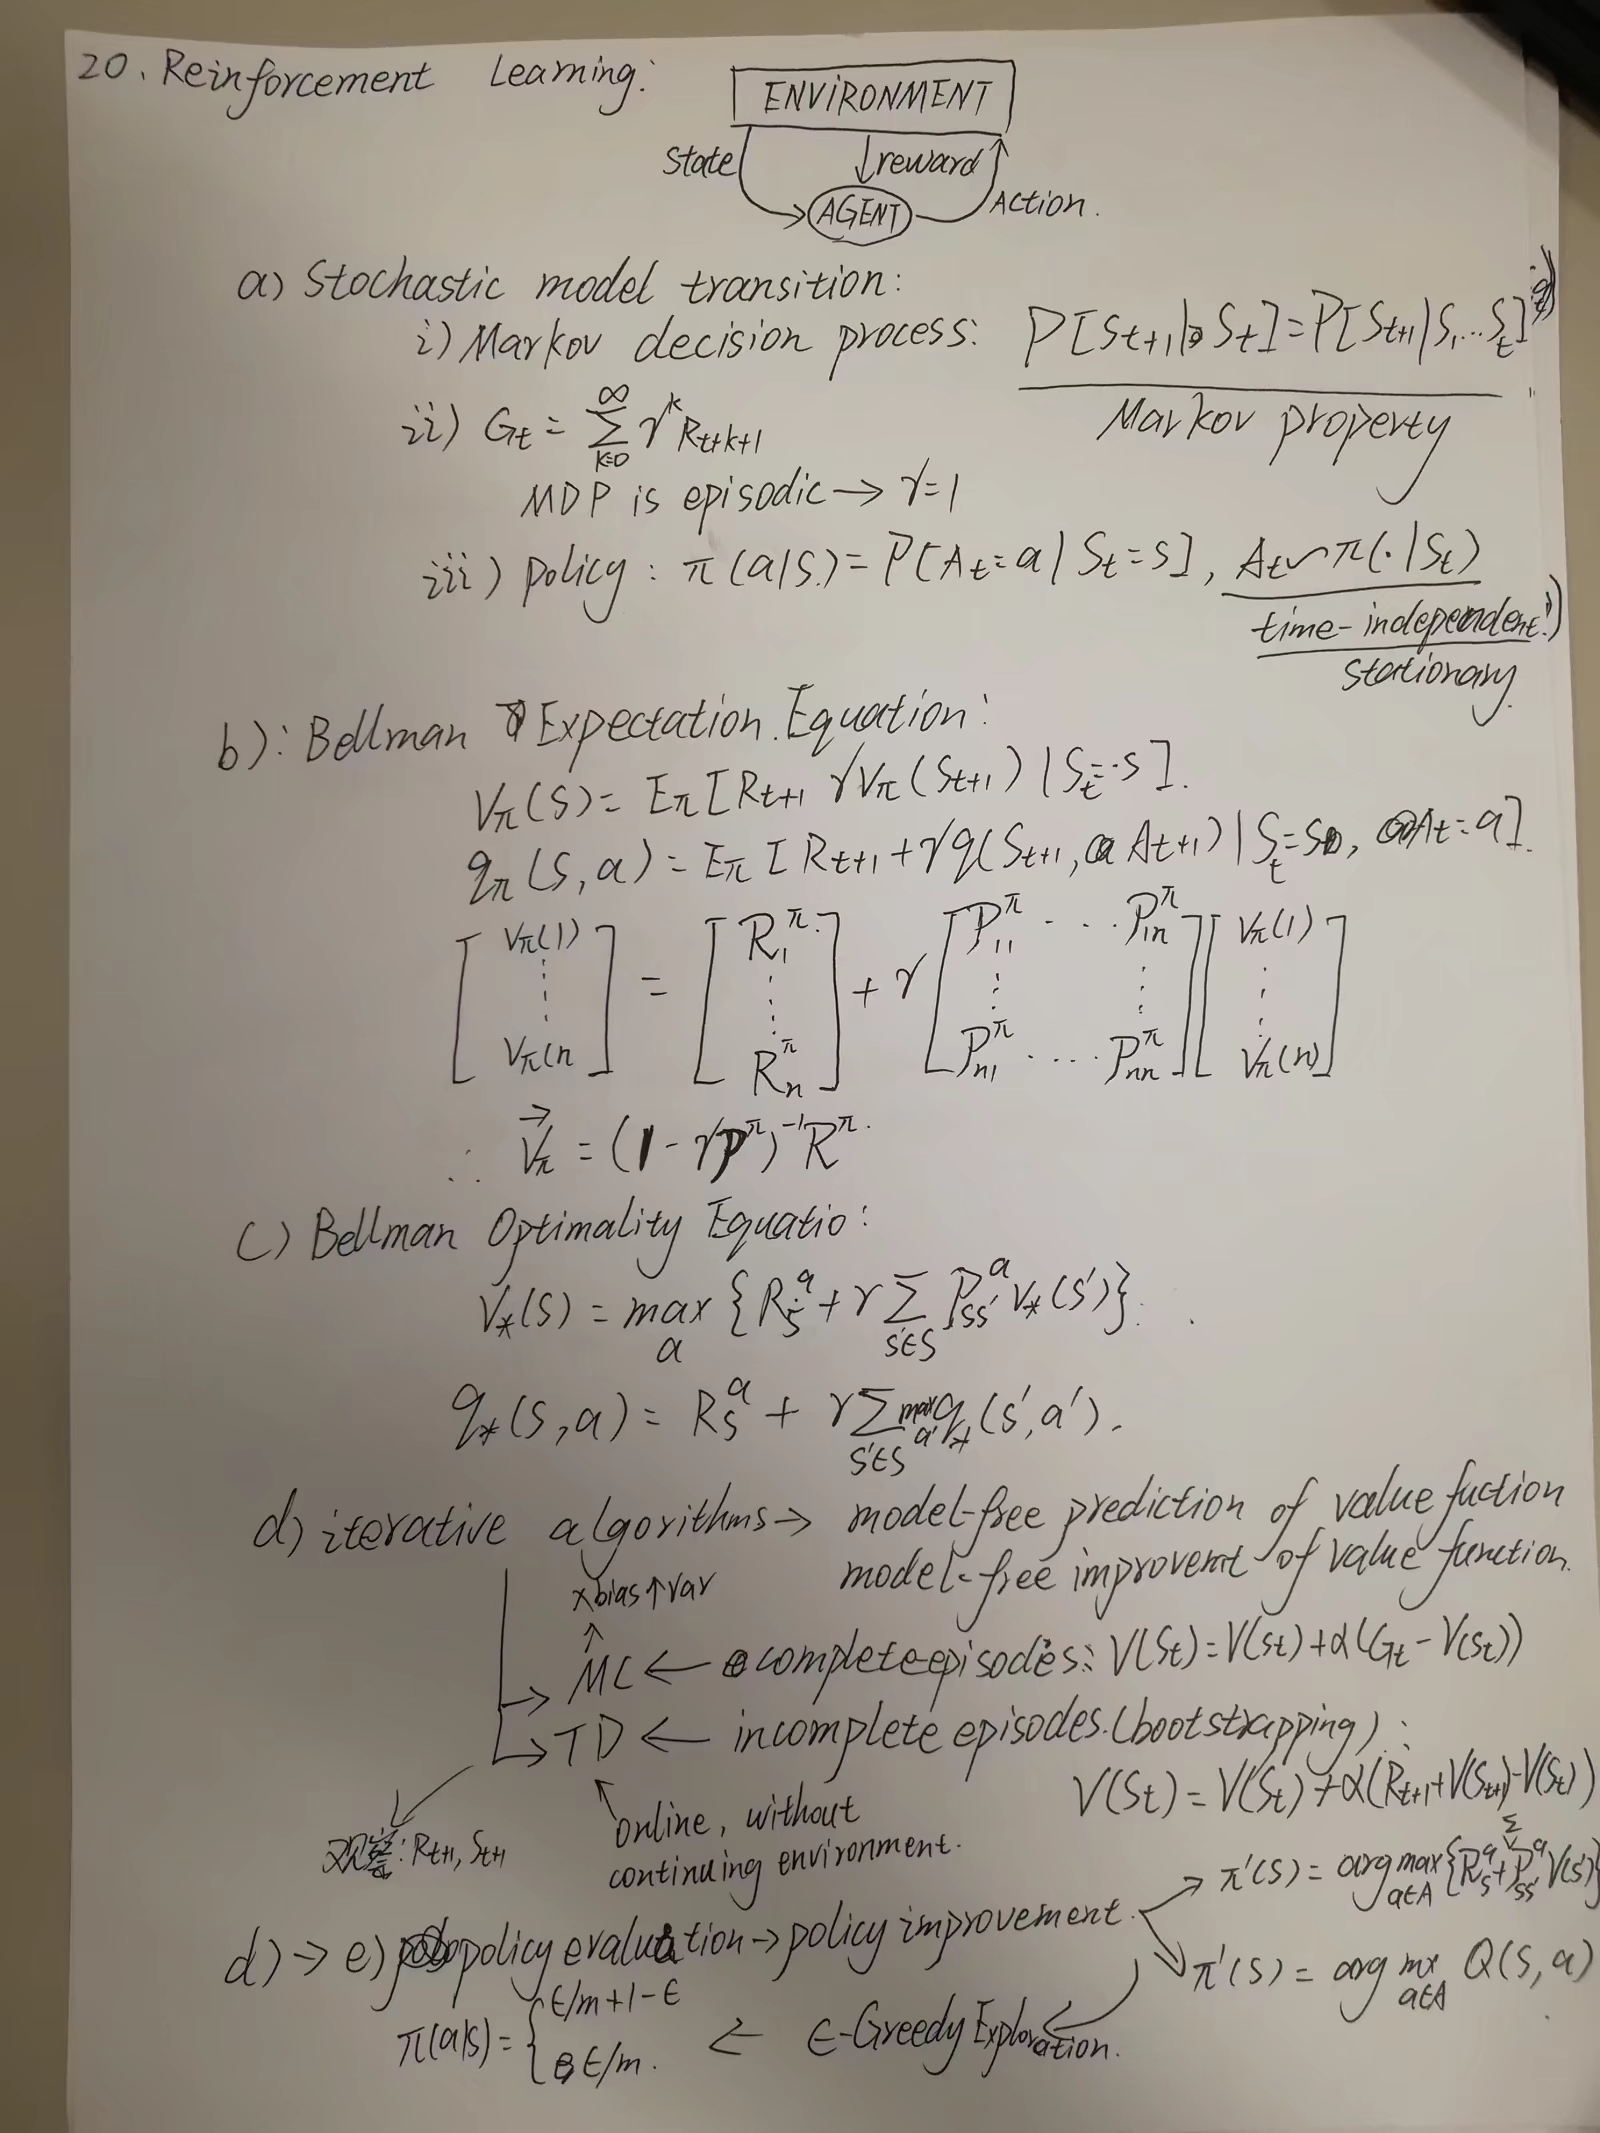 20. Reinforcement Learning:
ENVIRONMENT
State
reward
AGENT
Action.
a) Stochastic model transition:
i) Markov decision process: P[St+1|St]=P[St+1|S1...St]
Markov property
ii) Gt = ∑_{k=0}^{∞} γ^k Rt+k+1
MDP is episodic → γ=1
iii) policy: π(a|S)=P[At=a|St=s], At~π(·|St)
time-independent
stationary
b): Bellman Expectation Equation:
Vπ(S)= Eπ[Rt+1 γVπ(St+1)|St=s].
qπ(S,a)=Eπ[Rt+1+γq(St+1, At+1)|St=s, At=a].
[Vπ(1) ⋮ Vπ(n] = [R1^π ⋮ Rn^π] + γ[P11^π ... P1n^π ⋮ ⋮ Pn1^π .... Pnn^π][Vπ(1) ⋮ Vπ(n)]
∴ Vπ = (1-γP^π)^-1 R^π.
c) Bellman Optimality Equatio:
V*(S) = max_a {Rs^a + γ∑_{s'∈S} Pss'^a V*(s')}.
q*(S,a) = Rs^a + γ∑_{s'∈S} max_a' q*(s',a').
d) iterative algorithms → model-free prediction of value fuction
model-free improvemt of value function.
×bias↑var
MC ← complete episodes: V(St)=V(St)+α(Gt-V(St))
TD ← incomplete episodes.(bootstrapping):
V(St)=V(St)+α(Rt+1+V(St+1)-V(St))
观察: Rt+1, St+1
online, without
continuing environment.
π'(S) = argmax_{a∈A}{Rs^a+∑Pss'^a V(s')}
d) → e) policy evaluation → policy improvement.
π'(S) = arg mx_{a∈A} Q(S,a)
π(a|s)={ε/m+1-ε
ε/m. ← ε-Greedy Exploration.